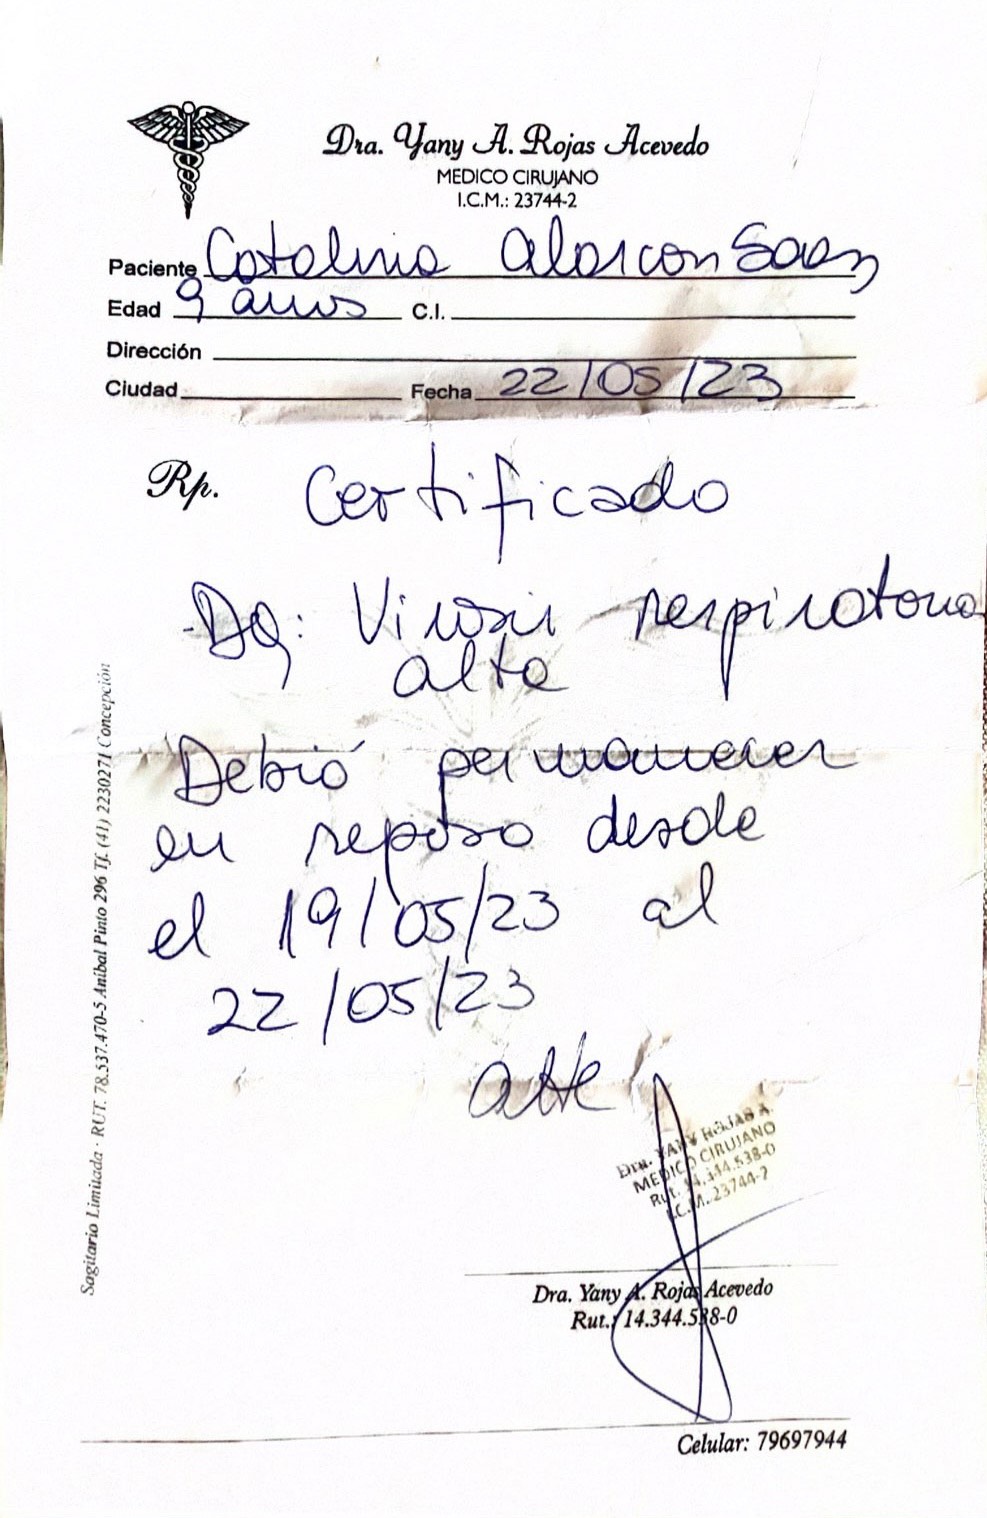 Dra. Yany A. Rojas Acevedo
MEDICO CIRUJANO
I.C.M.: 23744-2
Paciente Catalina Alarcon Saez
Edad 9 años C.I.
Dirección
Ciudad Fecha 22/05/23
Rp. Certificado
Dg: Virosis respiratoria
alta
Debió permanecer
en reposo desde
el 19/05/23 al
22/05/23
atte
Dra. YANY ROJAS A.
MEDICO CIRUJANO
Rut. 14.344.538-0
I.C.M. 23744-2
Dra. Yany A. Rojas Acevedo
Rut.: 14.344.538-0
Celular: 79697944
Sagitario Limitada - RUT. 78.537.470-5 Aníbal Pinto 296 Tf. (41) 2230271 Concepción